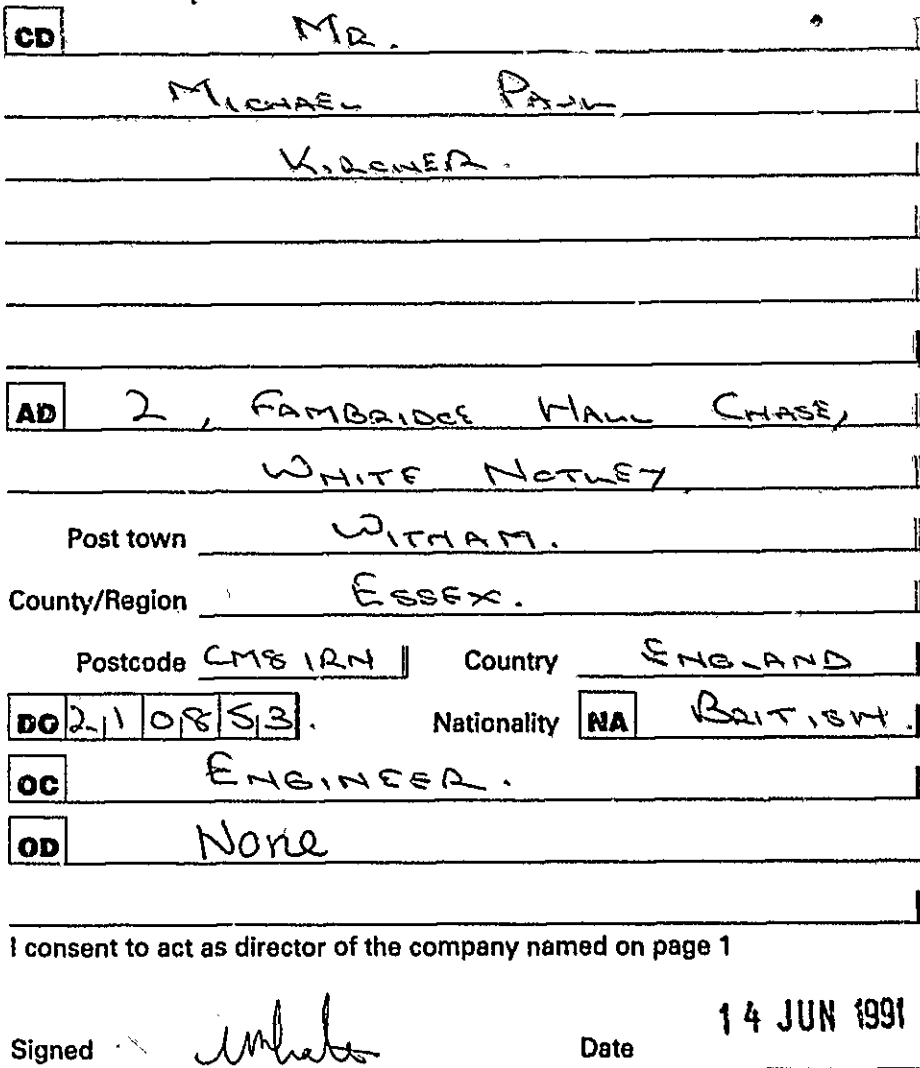 CD MR.
MICHAEL PAUL
KIRCHER.
AD 2, FAMBRIDGE HALL CHASE,
WHITE NOTLEY
Post town WITHAM.
County/Region ESSEX.
Postcode CM8 1RN Country ENGLAND
DO 210853. Nationality NA BRITISH.
OC ENGINEER.
OD None
I consent to act as director of the company named on page 1
Signed Date 14 JUN 1991